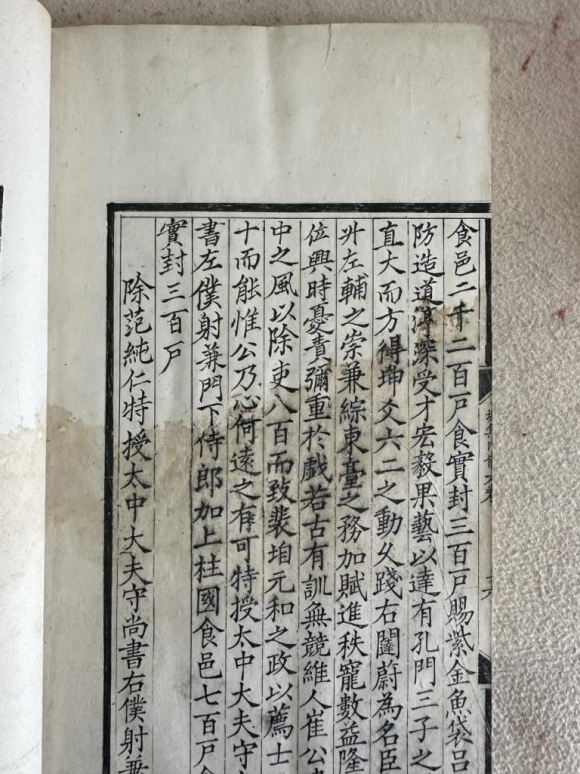 食邑二千二百戶食實封三百戶賜紫金魚袋呂
防造道淳深受才宏毅果藝以達有孔門三子之
直大而方得坤爻六二之動久踐右闥蔚為名臣
升左輔之崇兼綜東臺之務加賦進秩寵數益隆
位興時憂責彌重於戲若古有訓無競維人崔公
中之風以除吏八百而致裴垍元和之政以薦士
十而能惟公乃心何遠之有可特授太中大夫守
書左僕射兼門下侍郎加上柱國食邑七百戶食
實封三百戶
除范純仁特授太中大夫守尚書右僕射兼